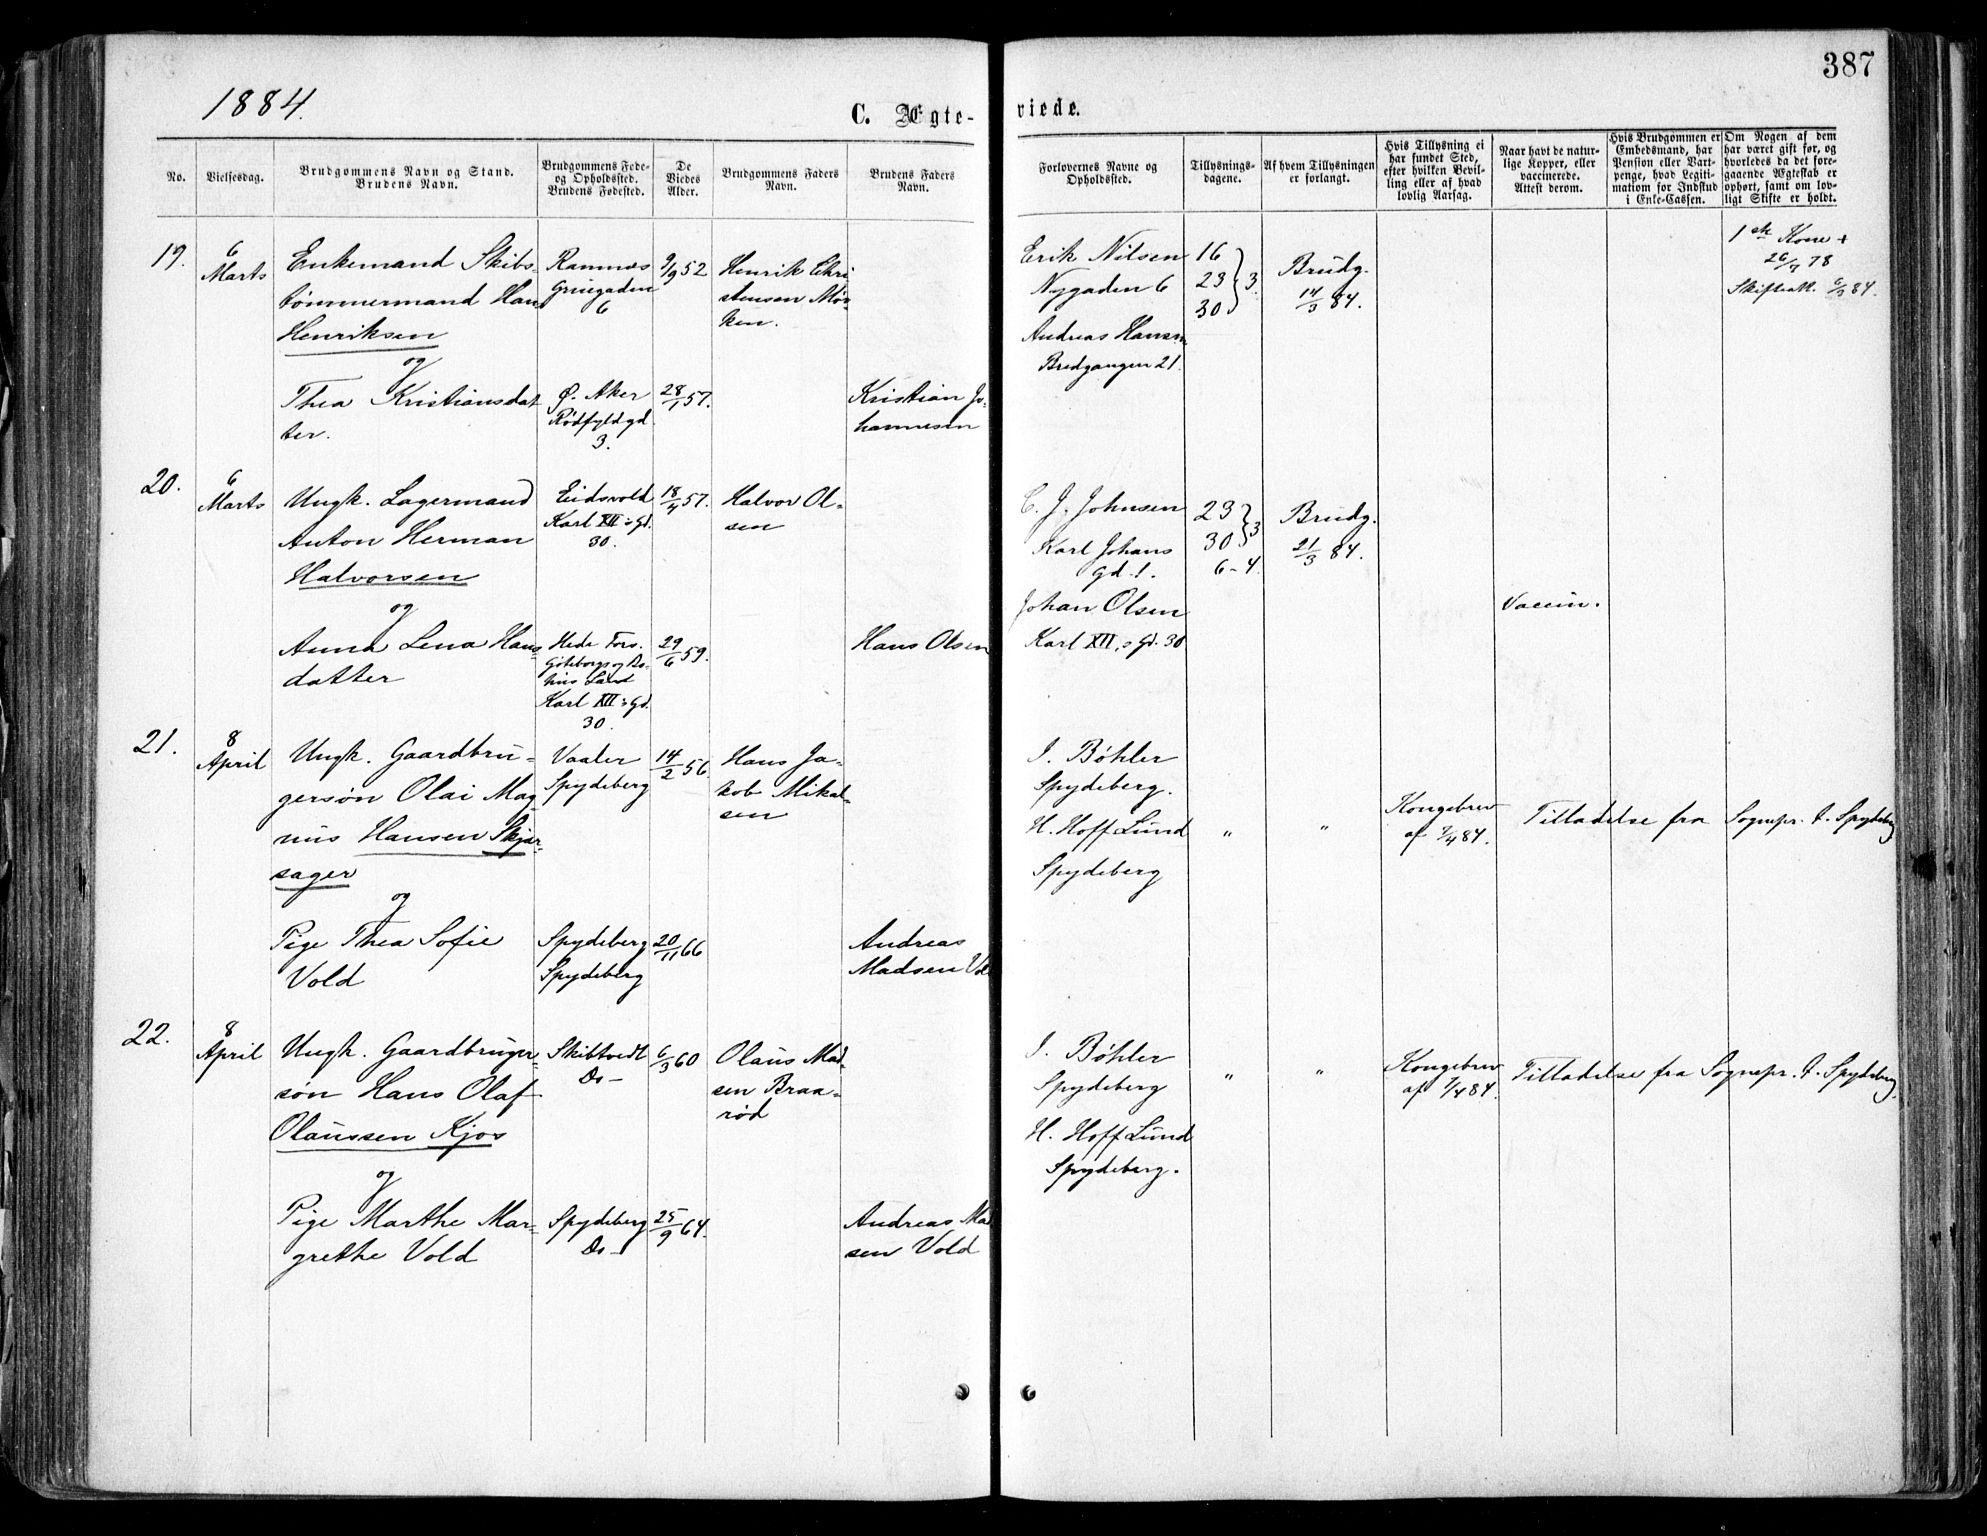 1884.
C. Ægte-
viede.
387
No.
Vielsesdag.
Brudgommens Navn og Stand.
Brudens Navn.
Brudgommens Føde-
og Opholdssted.
Brudens Fødested.
De
Viedes
Alder.
Brudgommens Faders
Navn.
Brudens Faders
Navn.
Forlovernes Navne og
Opholdssted.
Tillysnings-
dagene.
Af hvem Tillysningen
er forlangt.
Hvis Tillysning ei
har fundet Sted,
efter hvilken Bevil-
ling eller af hvad
lovlig Aarsag.
Naar havt de natur-
lige Kopper, eller
vaccinerede.
Attest derom.
Hvis Brudgommen er
Embedsmand, har
Pension eller Vart-
penge, hvad Legiti-
mation for Indskud
i Enke-Cassen.
Om Nogen af dem
har været gift før, og
hvorledes da det fore-
gaaende Ægteskab er
ophørt, samt om lov-
ligt Skifte er holdt.
19.
6
Marts
Enkemand Skibs-
tømmermand Hans
Henriksen
og
Thea Kristiansdat
ter.
Ramnæs
Grüegaden
6
Ø. Aker
Rødfyldgd.
3.
9/9 52
28/1 57.
Henrik Chri
stensen Mør-
ken.
Kristian Jo-
hannesen
Erik Nilsen
Nygaden 6
Andreas Hansen
Bredgangen 21.
16
23 } 3.
30
Brudg.
14/3 84.
1ste Kone +
26/7 78
Skifteatt. 6/3 84.
20.
6
Marts
Ungk. Lagermand
Anton Herman
Halvorsen
og
Anna Lena Hans-
datter
Eidsvold
Karl XII's Gd.
30.
Hede Fors.
Göteborgs og Bo-
hus Länd
Karl XII's Gd.
30.
18/4 57.
29/6 59.
Halvor Ol-
sen
Hans Olsen
C. J. Johnsen
Karl Johans
Gd. 1.
Johan Olsen
Karl XII,s Gd. 30
23
30 } 3
6-4.
Brudg.
21/3 84.
Vaccin.
21.
8
April
Ungk. Gaardbru-
gersøn Olai Mag-
nus Hansen Skjør-
sager
og
Pige Thea Sofie
Vold
Vaaler
Spydeberg
Spydeberg
Spydeberg
14/2 56.
20/11 66
Hans Ja-
kob Mikal-
sen
Andreas
Madsen Vol
J. Bøhler
Spydeberg.
H. Hoff Lund
Spydeberg
"
"
Kongebrev
af 7/4 84.
Tilladelse fra Sognepr. t. Spydeberg
22.
8
April
Ungk. Gaardbruger-
søn Hans Olaf
Olaussen Kjos
og
Pige Marthe Mar-
grethe Vold
Skibtvedt
Do -
Spydeberg
Do -
6/3 60
25/9 64.
Olaus Mad-
sen Braa-
rød
Andreas Mad
sen Vold
J. Bøhler
Spydeberg
H. Hoff Lund
Spydeberg.
"
"
Kongebrev
af 7/4 84.
Tilladelse fra Sognepr. t. Spydeberg.